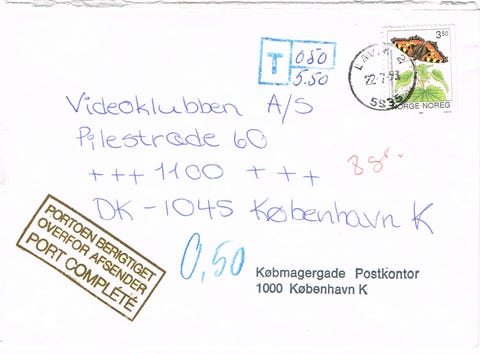 T 050
5.50
LAVIK
22-7-93
5935
350
NORGE NOREG
Videoklubben A/S
Pilestræde 60
+++ 1100 + + +
DK-1045 København K
8 gr.
PORTOEN BERIGTIGET
OVERFOR AFSENDER
PORT COMPLÉTÉ
0,50
Købmagergade Postkontor
1000 København K